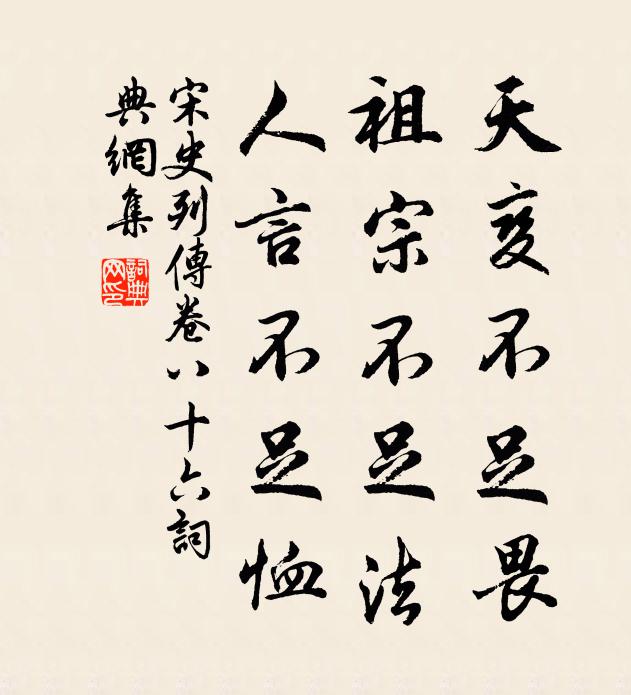 天变不足畏
祖宗不足法
人言不足恤
宋史列傳卷八十六詞
典網集
詞典
网印